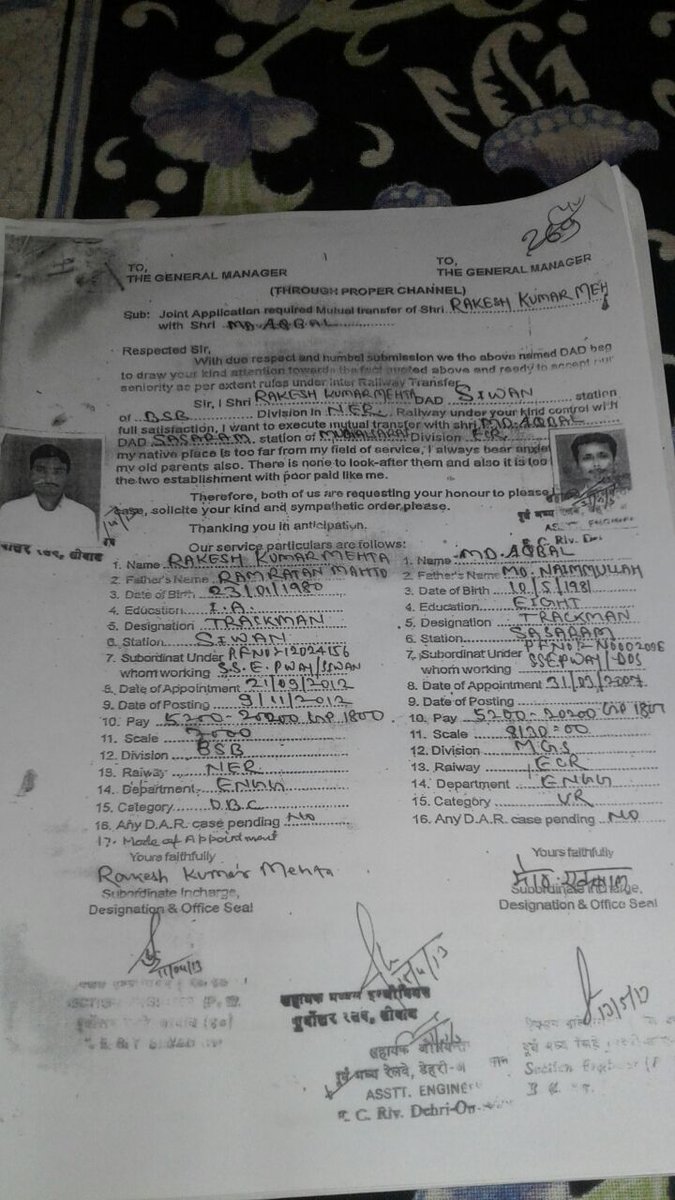 269
TO,
THE GENERAL MANAGER
TO,
THE GENERAL MANAGER
(THROUGH PROPER CHANNEL)
Sub: Joint Application required Mutual transfer of Shri RAKESH KUMAR MEH
with Shri MD. AQBAL
Respected Sir,
With due respect and humbel submission we the above named DAD beg
to draw your kind attention towards the fact quoted above and ready to accept our
seniority as per extent rules under Inter Railway Transfer
Sir, I Shri RAKESH KUMAR MEHTA DAD SIWAN station
of BSB Division in NER Railway under your kind control with
full satisfaction, I want to execute mutual transfer with shri MD. AQBAL
DAD SASARAM station of Division ECR
my native place is too far from my field of service, I always bear
my old parents also. There is none to look-after them and also it is too
the two establishment with poor paid like me.
Therefore, both of us are requesting your honour to please
solicite your kind and sympathetic order please.
Thanking you in anticipation.
Our service particulars are follows:
1. Name RAKESH KUMAR MEHTA
2. Father's Name RAM RATAN MAHTO
3. Date of Birth 23/01/1980
4. Education I.A.
5. Designation TRACKMAN
6. Station SIWAN
7. Subordinat Under PF NO. 12024156
whom working S.S.E PWAY/SIWAN
8. Date of Appointment 21/09/2012
9. Date of Posting 9/11/2012
10. Pay 5200-20200 GP 1800
11. Scale 7000
12. Division BSB
13. Raiway NER
14. Department ENGG
15. Category O.B.C
16. Any D.A.R. case pending NO
17. Mode of Appointment
Yours faithfully
Rakesh Kumar Mehta
Subordinate Incharge,
Designation & Office Seal
11/04/13
1. Name MD. AQBAL
2. Father's Name MD. NAIMMULLAH
3. Date of Birth 10/5/1981
4. Education EIGHT
5. Designation TRACKMAN
6. Station SASARAM
7. Subordinat Under
whom working SSEPWAY/DOS
8. Date of Appointment 31/03/2007
9. Date of Posting
10. Pay 5200-20200 GP 1800
11. Scale 8120=00
12. Division M.G.S
13. Raiway ECR
14. Department ENGG
15. Category UR
16. Any D.A.R. case pending NO
Yours faithfully
Subordinate Incharge,
Designation & Office Seal
सहायक मण्डल इन्जीनियर
पूर्वोत्तर रेलवे, सीवान
पूर्व मध्य रेलवे, डेहरी-
ASSTT. ENGINE
C. Rly. Dehri-On
13/5/13
Section Engineer